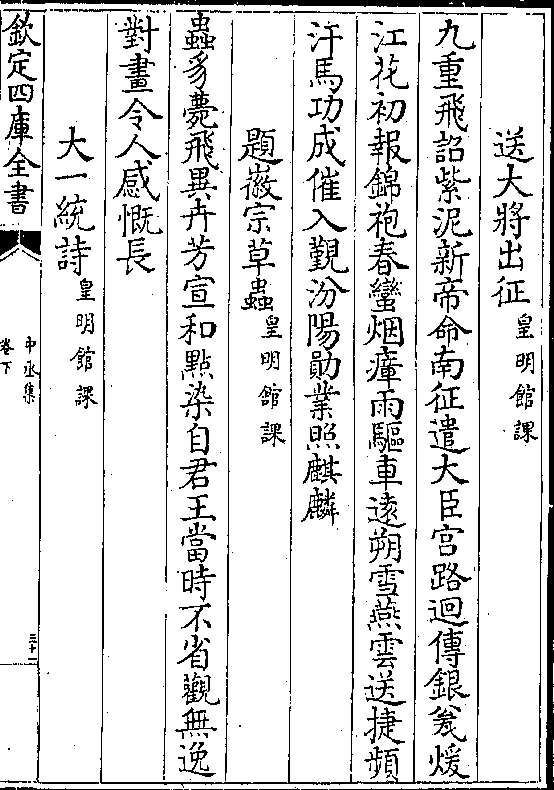 送大將出征皇明館課
九重飛詔紫泥新帝命南征遣大臣宫路迥傳銀瓮煖
江花初報錦袍春蠻烟瘴雨驅車逺朔雪燕雲送捷頻
汗馬功成催入覲汾陽勛業照麒麟
題徽宗草蟲皇明館課
蟲豸薨飛異卉芳宣和點染自君王當時不省觀無逸
對畫令人感慨長
大一統詩皇明館課
欽定四庫全書
中丞集
卷下
三十一